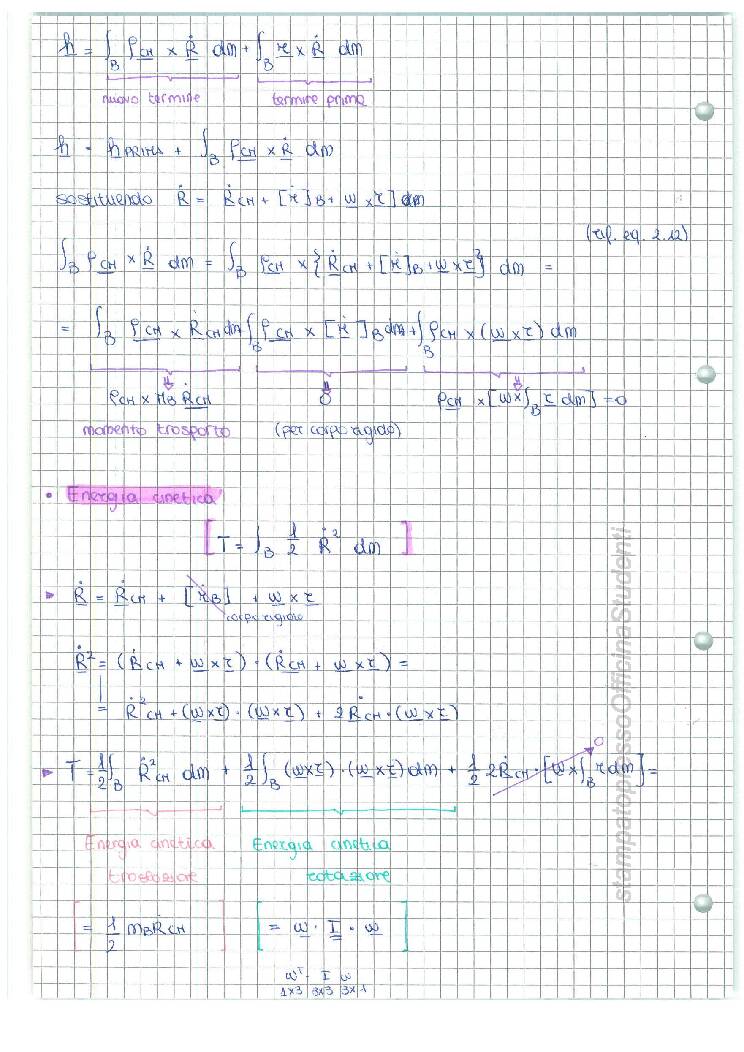 h = ∫_B ρ_CM × Ṙ dm + ∫_B r × Ṙ dm
nuovo termine termine prima
h = h_PRIMA + ∫_B ρ_CM × Ṙ dm
sostituendo Ṙ = Ṙ_CM + [ṙ]_B + ω × r ] dm
(rif. eq. 2.12)
∫_B ρ_CM × Ṙ dm = ∫_B ρ_CM × {Ṙ_CM + [ṙ]_B + ω × r} dm =
= ∫_B ρ_CM × Ṙ_CM dm ∫_B ρ_CM × [ṙ]_B dm + ∫_B ρ_CM × (ω × r) dm
ρ_CM × M_B Ṙ_CM 0 ρ_CM × [ω × ∫_B r dm] = 0
momento trasporto (per corpo rigido)
• Energia cinetica
[T = ∫_B 1/2 Ṙ² dm ]
► Ṙ = Ṙ_CM + [ṙ_B] + ω × r
corpo rigido
Ṙ² = (Ṙ_CM + ω × r) · (Ṙ_CM + ω × r) =
= Ṙ²_CM + (ω × r) · (ω × r) + 2Ṙ_CM · (ω × r)
► T = 1/2 ∫_B Ṙ²_CM dm + 1/2 ∫_B (ω × r) · (ω × r) dm + 1/2 2Ṙ_CM · [ω × ∫_B r dm] = 0
Energia cinetica Energia cinetica
traslazione rotazione
[= 1/2 m_B Ṙ_CM ] [= ω · I · ω ]
ω^T · I ω
1×3 3×3 3×1
stampatopressoOfficinaStudenti